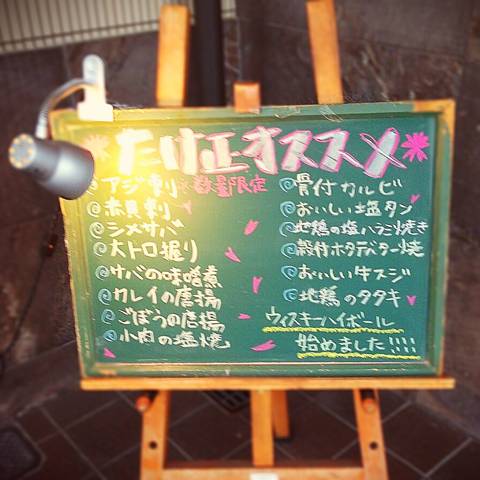 たけ正オススメ
アジ刺 数量限定
赤貝刺
シメサバ
大トロ握り
サバの味噌煮
カレイの唐揚
ごぼうの唐揚
小肉の塩焼
骨付カルビ
おいしい塩タン
地鶏の塩ハラミ焼き
殻付ホタテバター焼
おいしい牛スジ
地鶏のタタキ
ウィスキーハイボール
始めました!!!!